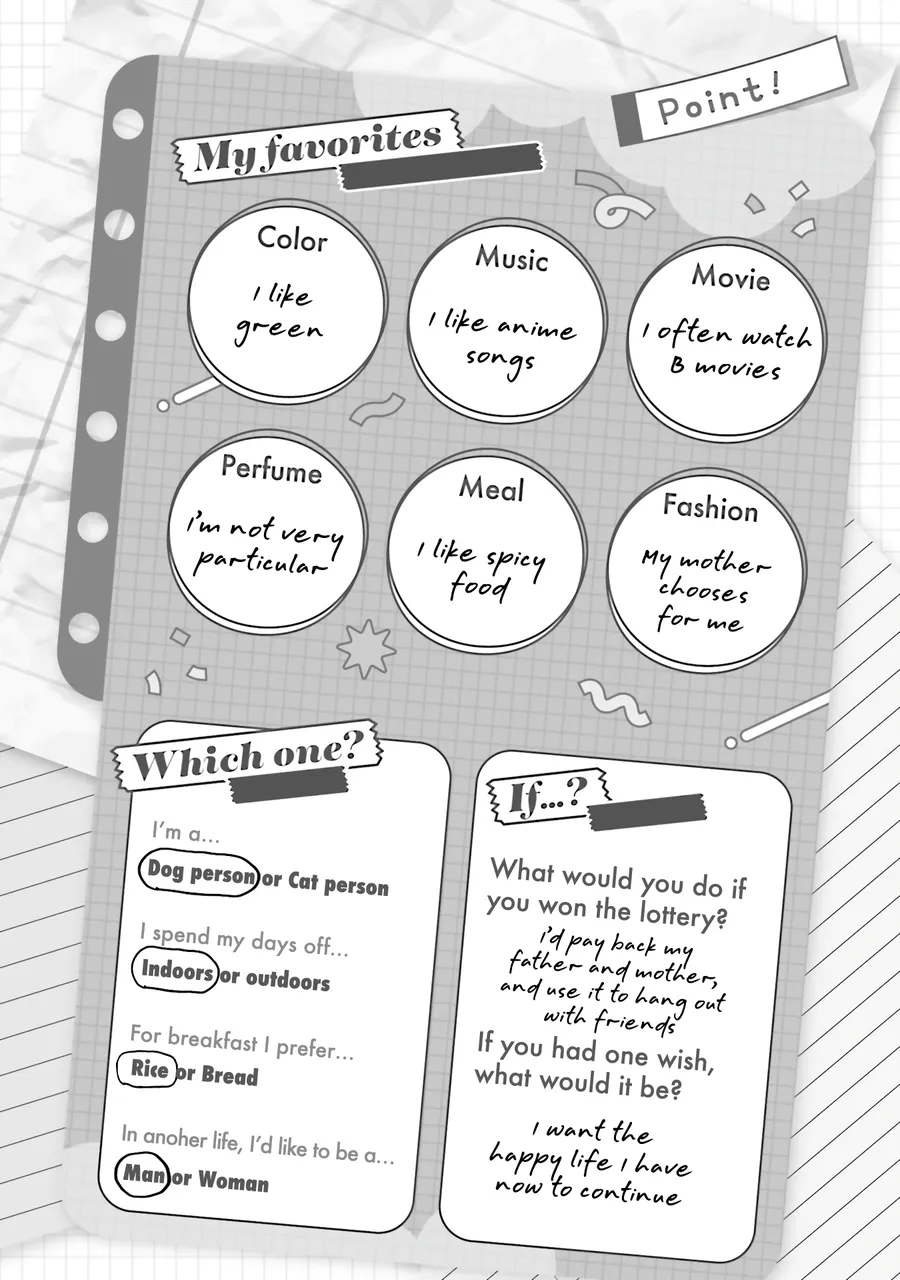 Point!
My favorites
Color
I like
green
Music
I like anime
songs
Movie
I often watch
B movies
Perfume
I'm not very
particular
Meal
I like spicy
food
Fashion
My mother
chooses
for me
Which one?
I'm a...
Dog person or Cat person
I spend my days off...
Indoors or outdoors
For breakfast I prefer...
Rice or Bread
In anoher life, I'd like to be a...
Man or Woman
If...?
What would you do if
you won the lottery?
I'd pay back my
father and mother,
and use it to hang out
with friends
If you had one wish,
what would it be?
I want the
happy life I have
now to continue